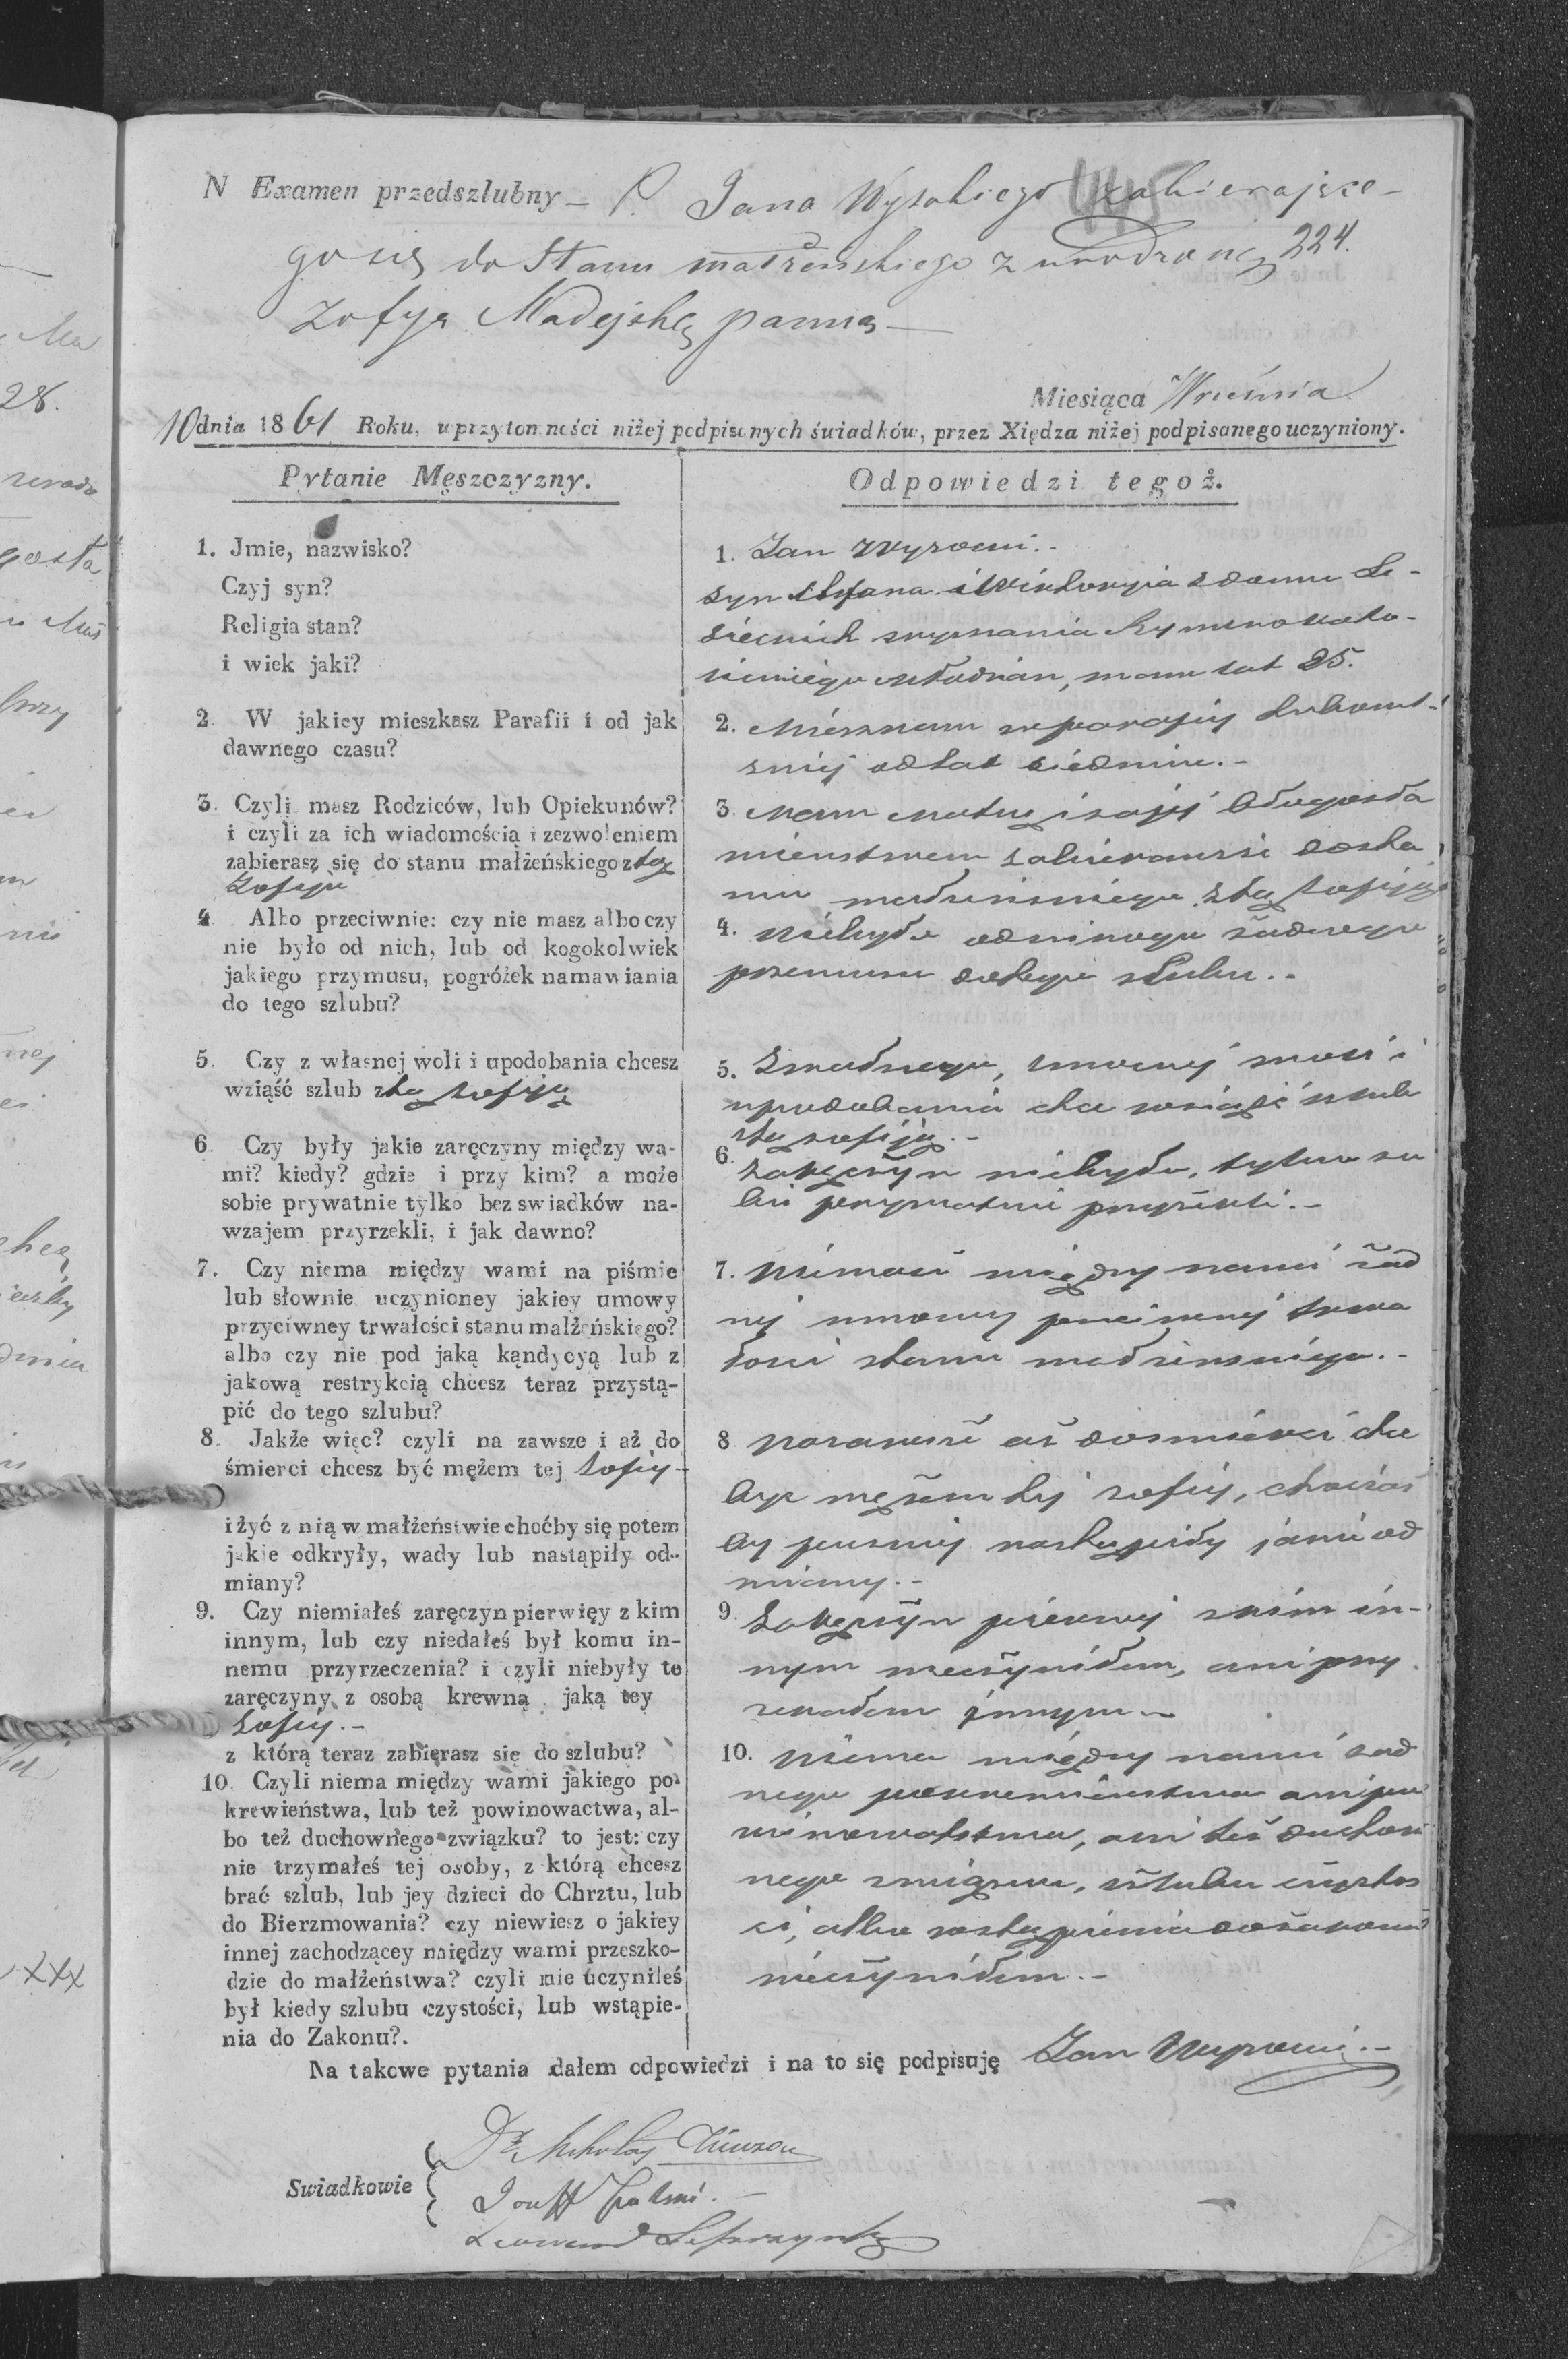 N Examen przedszlubny – P. Jana Wysokiego zabierające-
go się do Stanu małżeńskiego z urodzoną 224.
Zofyą Madejską panną –
Miesiąca Września
10 dnia 1861 Roku, w przytomności niżej podpisanych świadków, przez Xiędza niżej podpisanego uczyniony.
Pytanie Męszczyzny.
1. Jmie, nazwisko?
Czyj syn?
Religia stan?
i wiek jaki?
2 W jakiey mieszkasz Parafii i od jak
dawnego czasu?
3. Czyli masz Rodziców, lub Opiekunów?
i czyli za ich wiadomością i zezwoleniem
zabierasz się do stanu małżeńskiego z tą
Zofiją
4 Albo przeciwnie: czy nie masz albo czy
nie było od nich, lub od kogokolwiek
jakiego przymusu, pogróżek namawiania
do tego szlubu?
5. Czy z własnej woli i upodobania chcesz
wziąść szlub z tą Zofiją
6. Czy były jakie zaręczyny między wa-
mi? kiedy? gdzie i przy kim? a może
sobie prywatnie tylko bez swiadków na-
wzajem przyrzekli, i jak dawno?
7. Czy niema między wami na piśmie
lub słownie uczynioney jakiey umowy
przyciwney trwałości stanu małżeńskiego?
albo czy nie pod jaką kąndycyą lub z
jakową restrykcią chcesz teraz przystą-
pić do tego szlubu?
8. Jakże więc? czyli na zawsze i aż do
śmierci chcesz być mężem tej Zofiy –
i żyć z nią w małżeństwie choćby się potem
jakie odkryły, wady lub nastąpiły od-
miany?
9. Czy niemiałeś zaręczyn pierwięy z kim
innym, lub czy niedałeś był komu in-
nemu przyrzeczenia? i czyli niebyły te
zaręczyny z osobą krewną jaką tey
Zofiy. –
z którą teraz zabięrasz się do szlubu?
10. Czyli niema między wami jakiego po-
krewieństwa, lub też powinowactwa, al-
bo też duchownego związku? to jest: czy
nie trzymałeś tej osoby, z którą chcesz
brać szlub, lub jey dzieci do Chrztu, lub
do Bierzmowania? czy niewiesz o jakiey
innej zachodzącey między wami przeszko-
dzie do małżeństwa? czyli nie uczyniłeś
był kiedy szlubu czystości, lub wstąpie-
nia do Zakonu?.
Odpowiedzi tegoż.
1. Jan Wysocki. –
syn i Wiktoryia z domu
wyznania Rymsko kato-
Młodzian, mam lat 25.
2. Mieszkam w parafiy
od lat siedmiu. –
3. Mam Matkę i z jej błogosła
wieństwem zabieram się do sta
nu małżeńskiego z tą Zofiją
4. Niebyło odnikogo żadnego
przemusu do tego słubu. –
5. Z własnego, woli i
upodobania chce wziąść szlub
z tą Zofiją. –
6. Zaręczyn niebyło, tylko so
bie prywatnie przyrzekli. –
7. Niemasz między nami żad
nej umowy przeciwnej trwa
łosci stanu małżenskiego. –
8 Nazawsze aż do smierci chce
byc mężem tej Zofiy, chociaż
by puzniej nastąpiły jakie od
miany. –
9. Zaręczyn pierwej z kim in-
nym nieczyniłem, ani przy
rzekałem innym –
10. Niema między nami żad
nego pokrewienstwa ani po
winowatstwa, ani też duchow
nego związku, szlubu czystos
ci, albo wstąpienia do zakonu
nieczyniłem. –
Na takowe pytania dałem odpowiedzi i na to się podpisuję Jan Wysocki. –
Swiadkowie
Dr. Mikołaj
Józeff